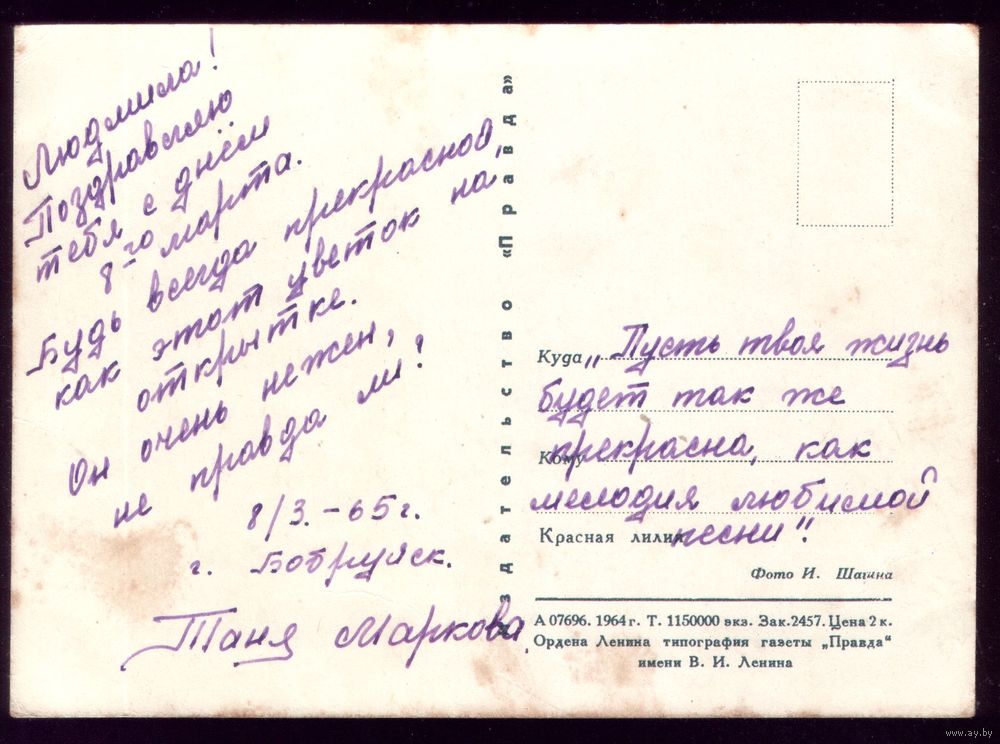 Людмила!
Поздравляю
тебя с днём
8-го марта.
Будь всегда прекрасной,
как этот цветок на
открытке.
Он очень нежен,
не правда ли?
8/3.-65г.
г. Бобруйск.
Таня Маркова
здательство «Правда»
Куда „Пусть твоя жизнь
будет так же
Кому прекрасна, как
мелодия любимой
Красная лилия песни".
Фото И. Шагина
А 07696. 1964 г. Т. 1150000 экз. Зак. 2457. Цена 2 к.
Ордена Ленина типография газеты „Правда"
имени В. И. Ленина
www.ay.by